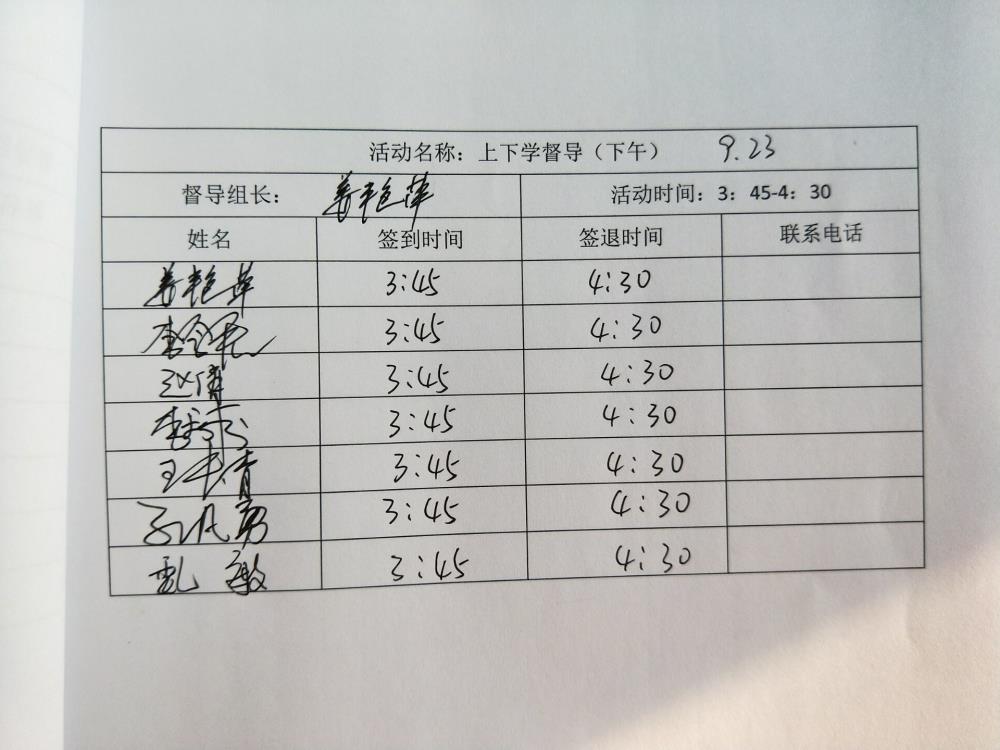 活动名称：上下学督导（下午） 9.23
督导组长： 姜艳萍 活动时间：3：45-4：30
姓名 签到时间 签退时间 联系电话
姜艳萍 3:45 4:30
李 3:45 4:30
赵倩 3:45 4:30
李 3:45 4:30
王 青 3:45 4:30
孙 勇 3:45 4:30
敏 3:45 4:30